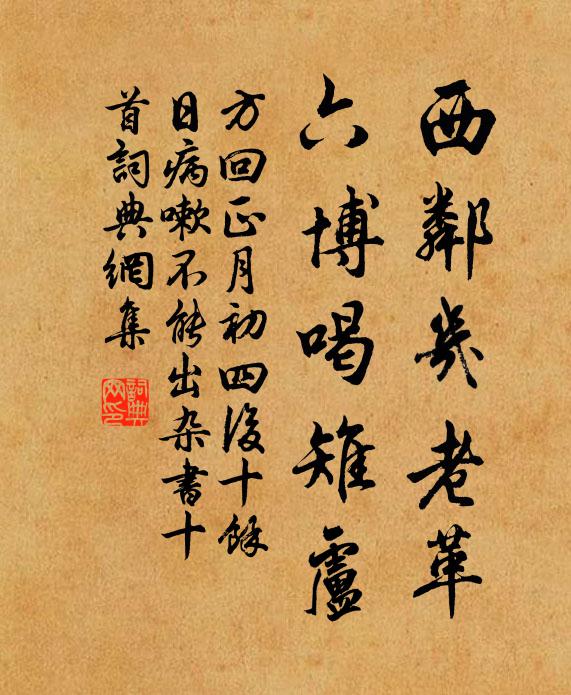 西鄰幾老革
六博喝雉盧
方回正月初四後十餘
日病嗽不能出杂書十
首詞典網集
詞典
网印